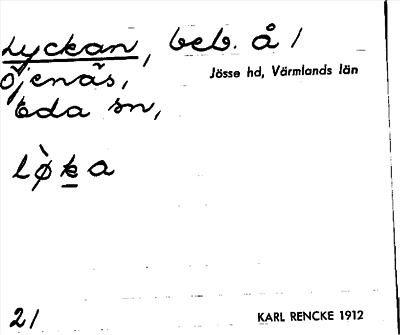 Lyckan, beb. å /
Öjenäs,
Jösse hd, Värmlands län
Eda sn,
lø̀ḵa
21
KARL RENCKE 1912